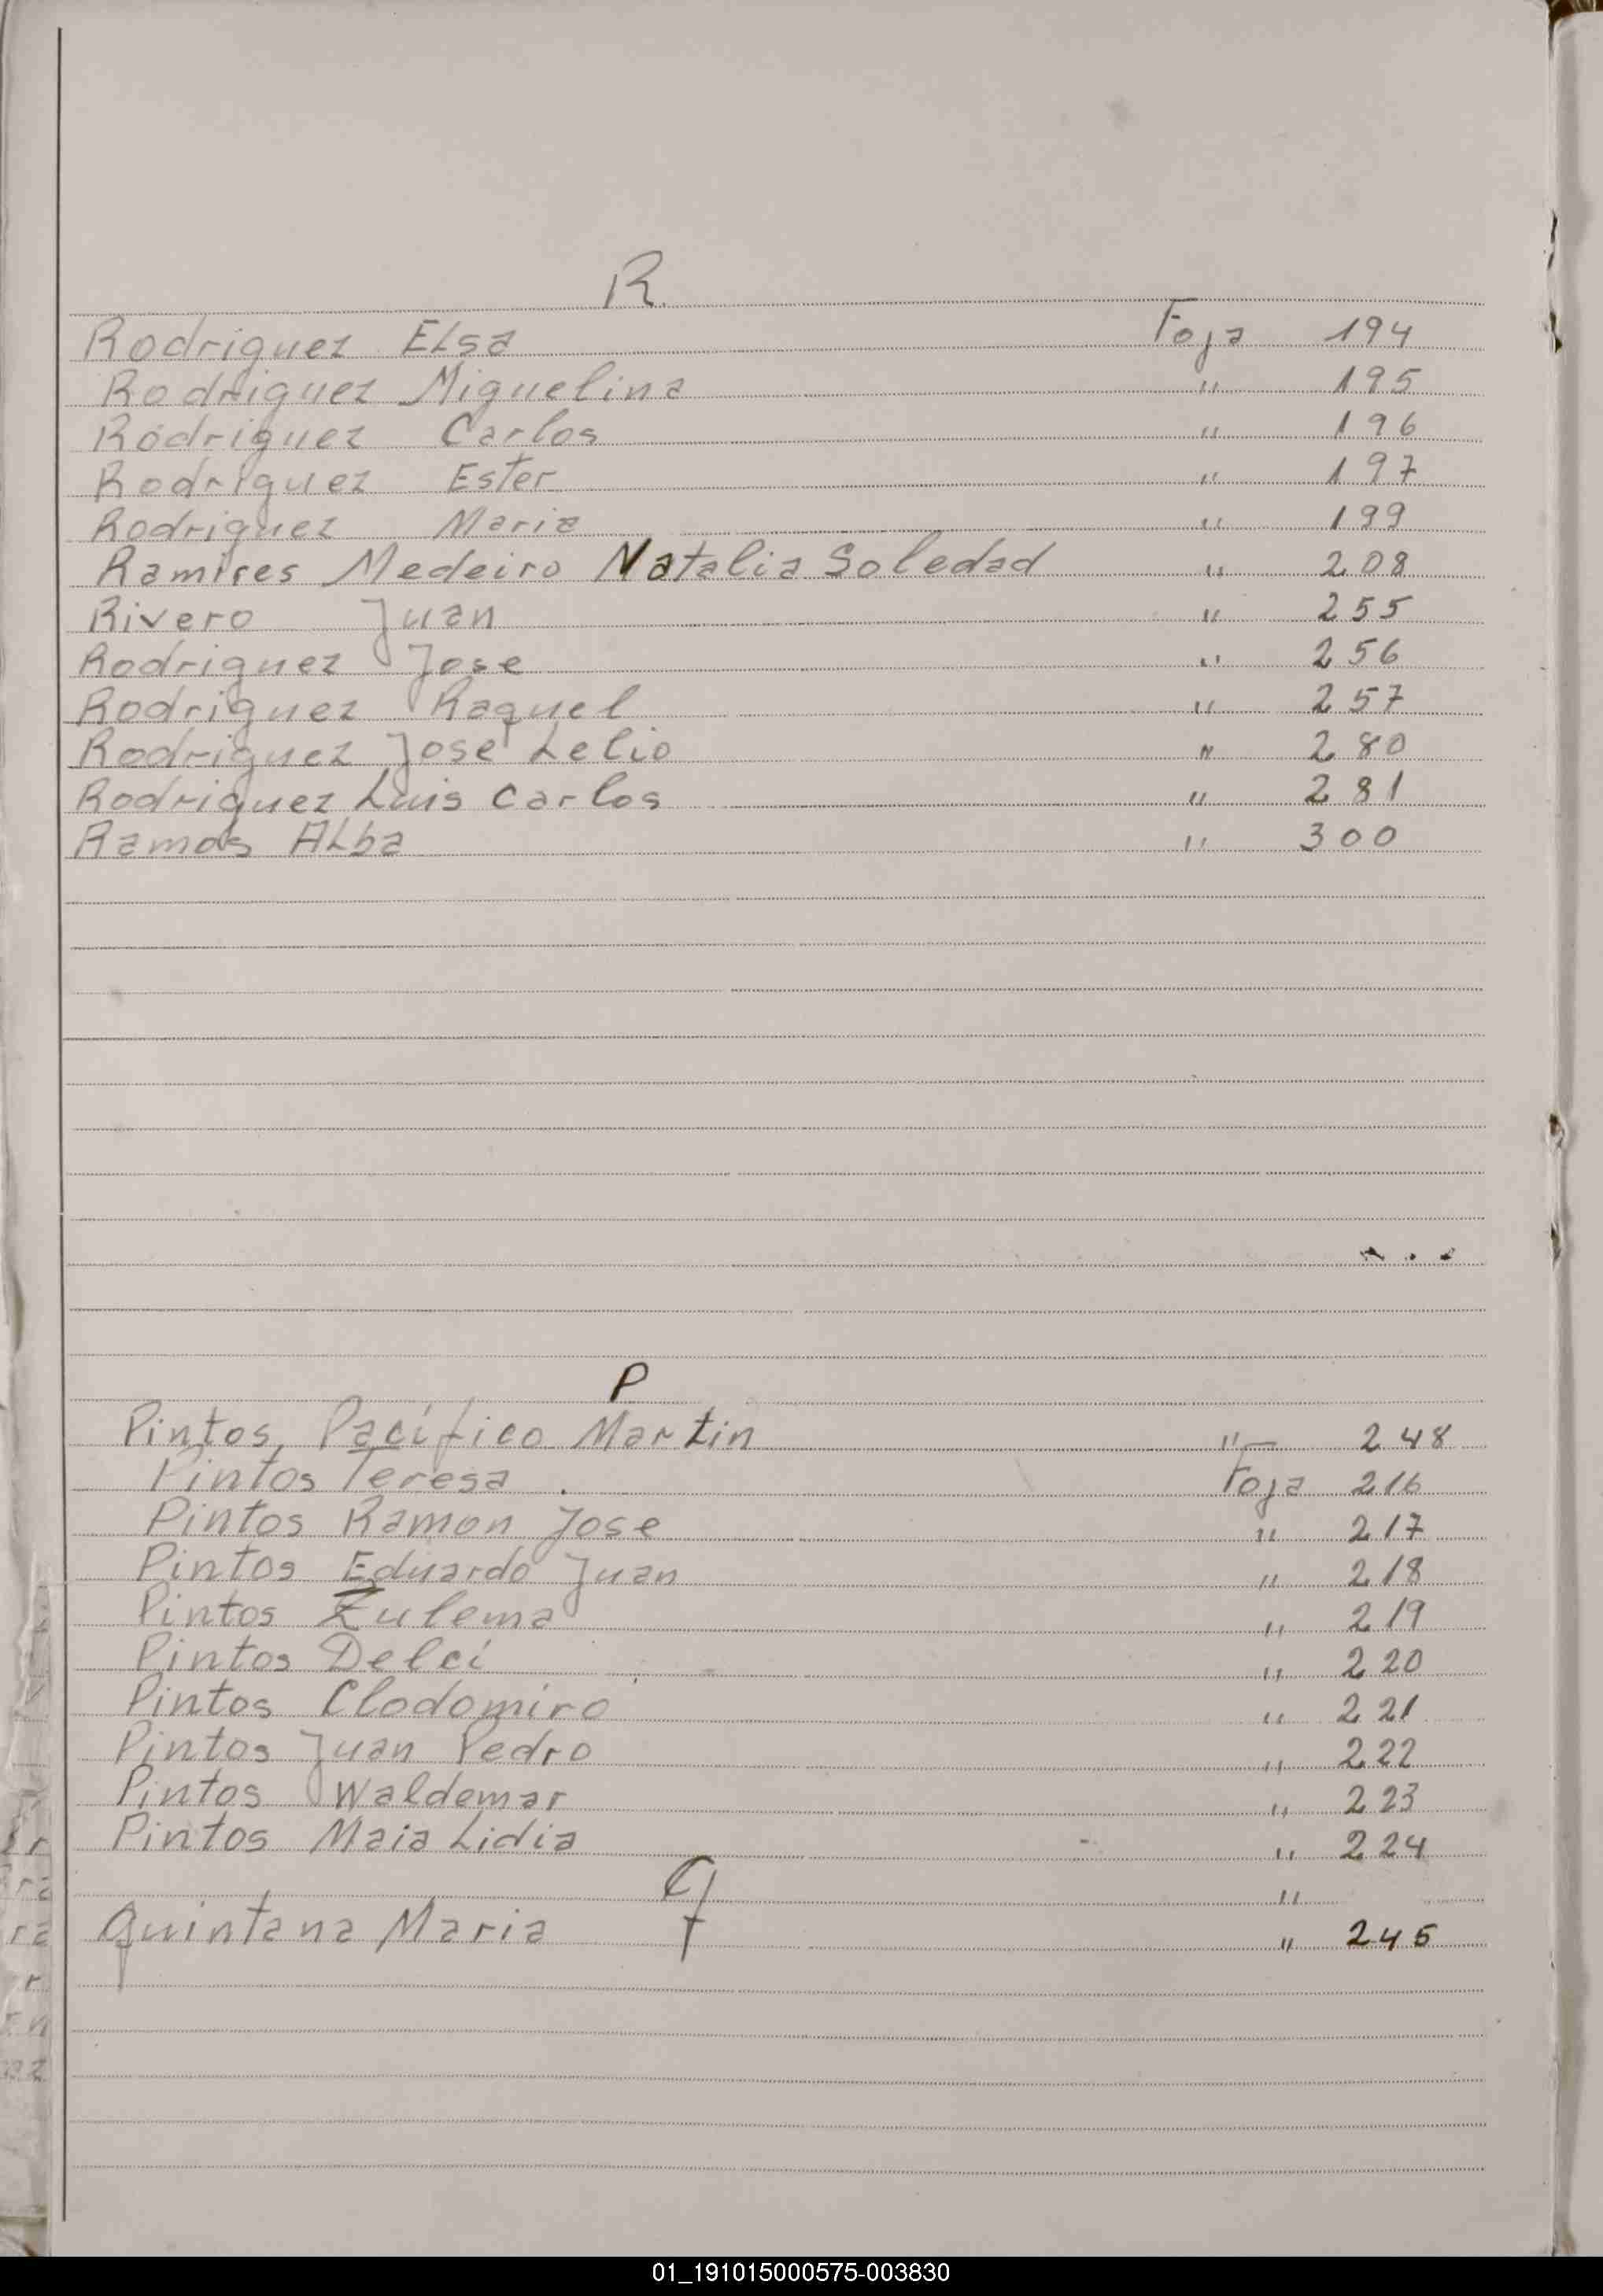 R.
Rodriguez Elsa Foja 194
Rodriguez Miguelina " 195
Rodriguez Carlos " 196
Rodriguez Ester " 197
Rodriguez Maria " 199
Ramires Medeiro Natalia Soledad " 208
Rivero Juan " 255
Rodriguez Jose " 256
Rodriguez Raquel " 257
Rodriguez Jose Lelio " 280
Rodriguez Luis Carlos " 281
Ramos Alba " 300
P
Pintos, Pacífico Martin " 248
Pintos Teresa Foja 216
Pintos Ramon Jose " 217
Pintos Eduardo Juan " 218
Pintos Zulema " 219
Pintos Delci " 220
Pintos Clodomiro " 221
Pintos Juan Pedro " 222
Pintos Waldemar " 223
Pintos Maia Lidia " 224
Q "
Quintana Maria " 245
01_191015000575-003830